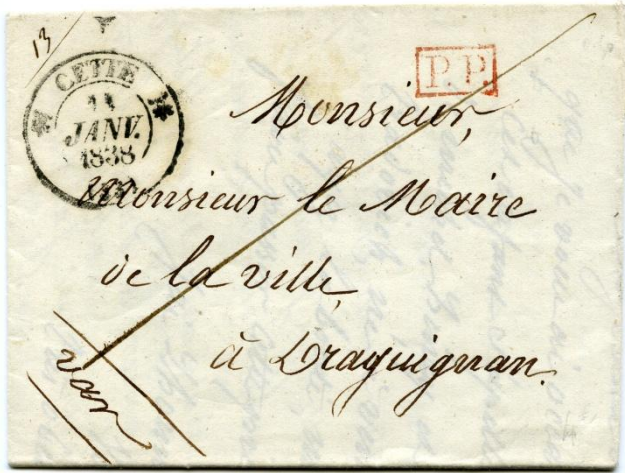 13
CETTE
11
JANV.
1838
P.P.
Monsieur,
Monsieur le Maire
de la ville,
à Draguignan.
var